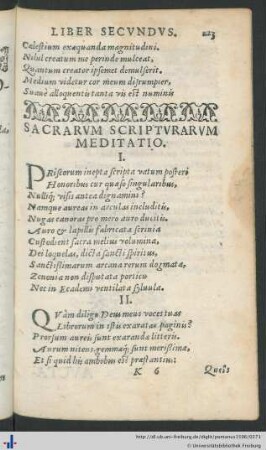 LIBER SECVNDVS.
Cœlestium exæquanda magnitudini.
Nihil creatum me perinde mulceat,
Quantum creator ipsemet demulserit.
Medium videtur cor meum disrumpier,
Suauè alloquenti tanta vis est numinis
SACRARVM SCRIPTVRARVM
MEDITATIO.
I.
PRiscorum inepta scripta vatum posteri
Honoribus cur quæso singularibus,
visi antea dignamini?
Namque aureas in arculas includitis,
Nugas canoras pro mero auro ducitis.
Auro & lapillis fabricata scrinia
Custodient sacra melius volumina,
Dei loquelas, dicta sancti spiritus,
Sanctissimarum arcana rerum dogmata,
Zenonia non disputata porticu
Nec in Ecademi ventilata syluula.
II.
QVàm diligo Deus meus vocet tuas
Librorum in istis exaratas paginis?
Prorsum aureis sunt exaranda litteris.
Aurum nitens, gemmæq; sunt merissima,
Et si quid his ambobus est præstantius:
K 6
Queis
http://dl.ub.uni-freiburg.de/diglit/pontanus1596/0171
© Universitätsbibliothek Freiburg